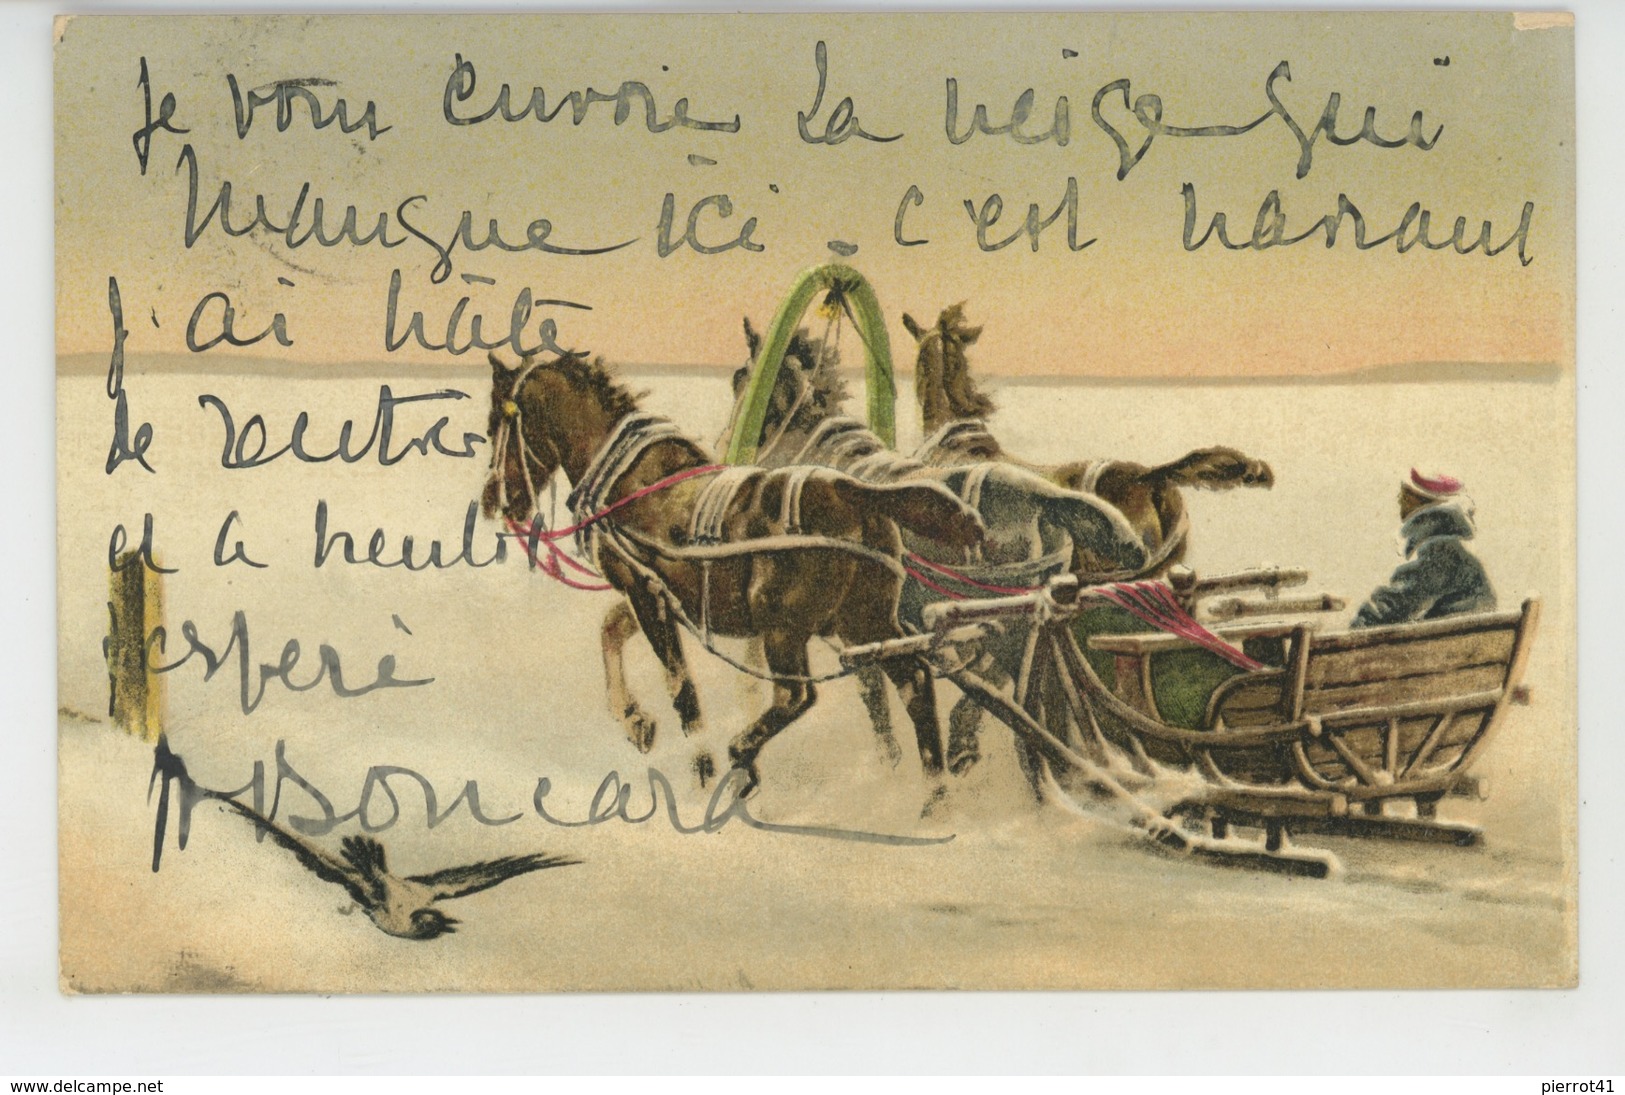 Je vous envoie la neige qui
manque ici - c'est navrant
j'ai hâte
de rentrer
et à bientôt
j'espère
Boncara
www.delcampe.net
pierrot41